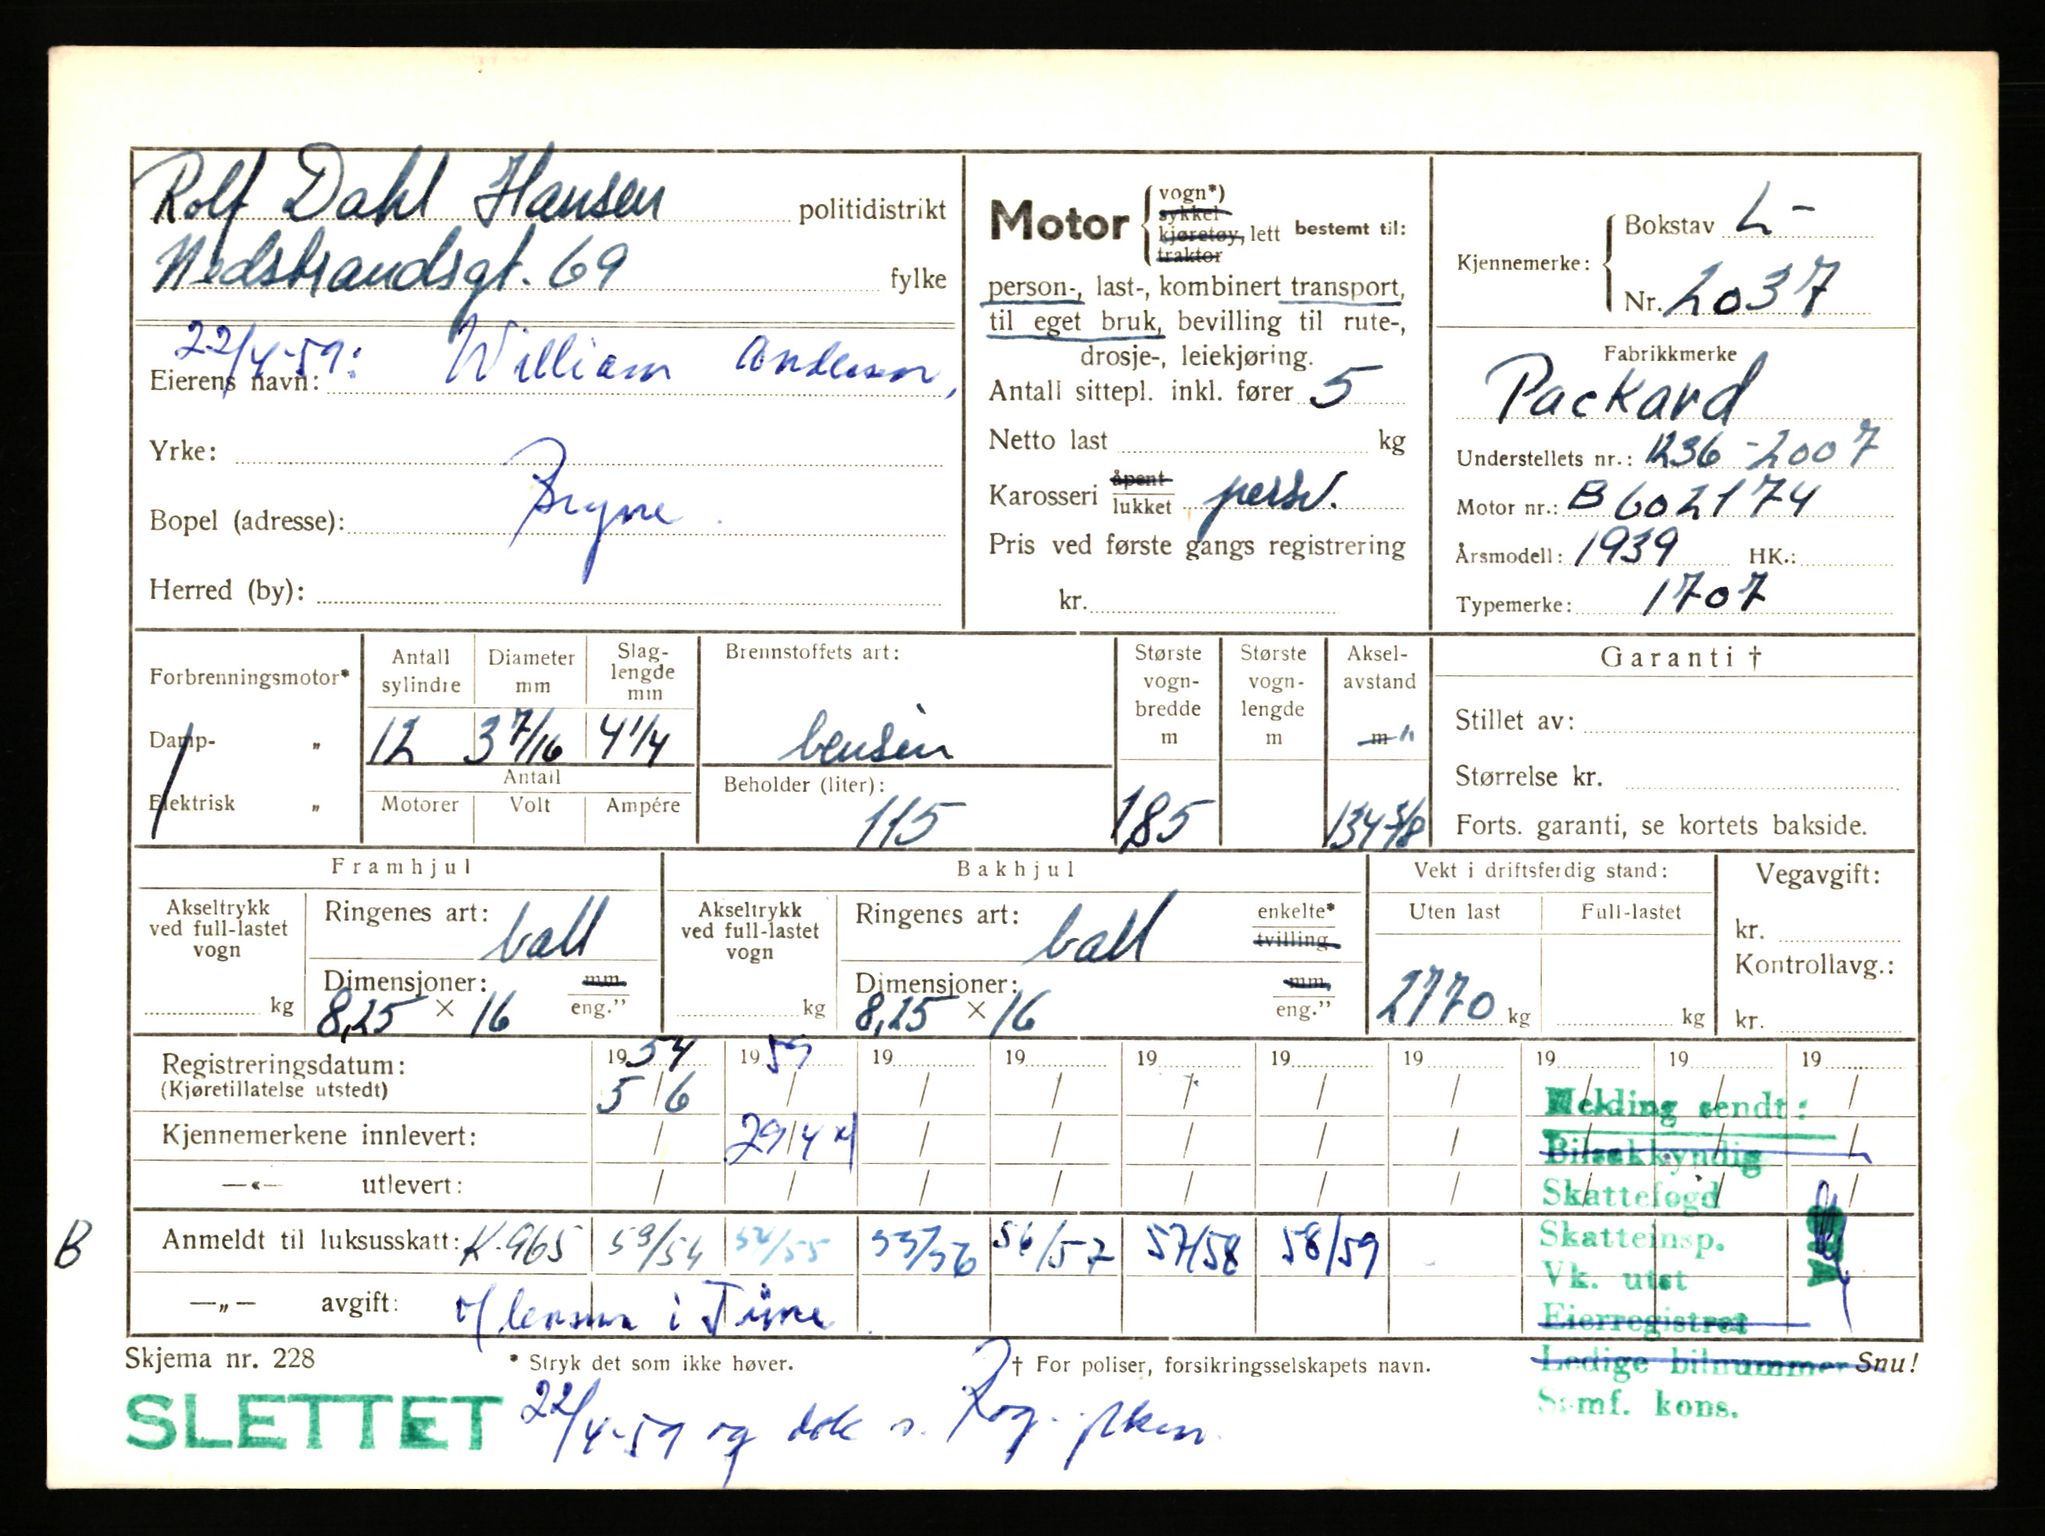 Rolf Dahl Hansen politidistrikt
Nedstrandsgt. 69 fylke
22/4-59: William Andersen,
Eierens navn:
Yrke:
Bopel (adresse): Bryne
Herred (by):
Motor vogn*) sykkel kjøretøy, lett traktor bestemt til:
person-, last-, kombinert transport,
til eget bruk, bevilling til rute-,
drosje-, leiekjøring.
Antall sittepl. inkl. fører 5
Netto last kg
Karosseri åpent lukket persv.
Pris ved første gangs registrering
kr.
Kjennemerke: Bokstav L-
Nr. 2037
Fabrikkmerke
Packard
Understellets nr.: 1236-2007
Motor nr.: B602174
Årsmodell: 1939 HK.:
Typemerke: 1707
Forbrenningsmotor*
Damp- „
Elektrisk „
Antall sylindre Diameter mm Slag-lengde mm
12 3 7/16 4 1/4
Antall
Motorer Volt Ampére
Brennstoffets art:
bensin
Beholder (liter):
115
Største vogn-bredde m
185
Største vogn-lengde m
Aksel-avstand m "
134 3/8
Garanti †
Stillet av:
Størrelse kr.
Forts. garanti, se kortets bakside.
Framhjul
Akseltrykk ved full-lastet vogn
kg
Ringenes art: ball
Dimensjoner: mm eng.”
8,25 × 16
Bakhjul
Akseltrykk ved full-lastet vogn
kg
Ringenes art: ball enkelte* tvilling
Dimensjoner: mm eng.”
8,25 × 16
Vekt i driftsferdig stand:
Uten last Full-lastet
2170 kg kg
Vegavgift:
kr.
Kontrollavg.:
kr.
Registreringsdatum: 1954 1959 19 19 19 19 19 19 19 19
(Kjøretillatelse utstedt) 5/6 / / / / / / / / /
Kjennemerkene innlevert: / 29/4 / / / / / / / /
—«— utlevert: / / / / / / / / / /
B Anmeldt til luksusskatt: K-965 53/54 54/55 55/56 56/57 57/58 58/59
—„— avgift: lensm i Time
Melding sendt:
Bilsakkyndig
Skattefogd
Skatteinsp.
Vk. utst
Eierregistret
Ledige bilnummer
Samf. kons.
Skjema nr. 228 * Stryk det som ikke høver. † For poliser, forsikringsselskapets navn. Snu!
SLETTET 22/4-59 og dok